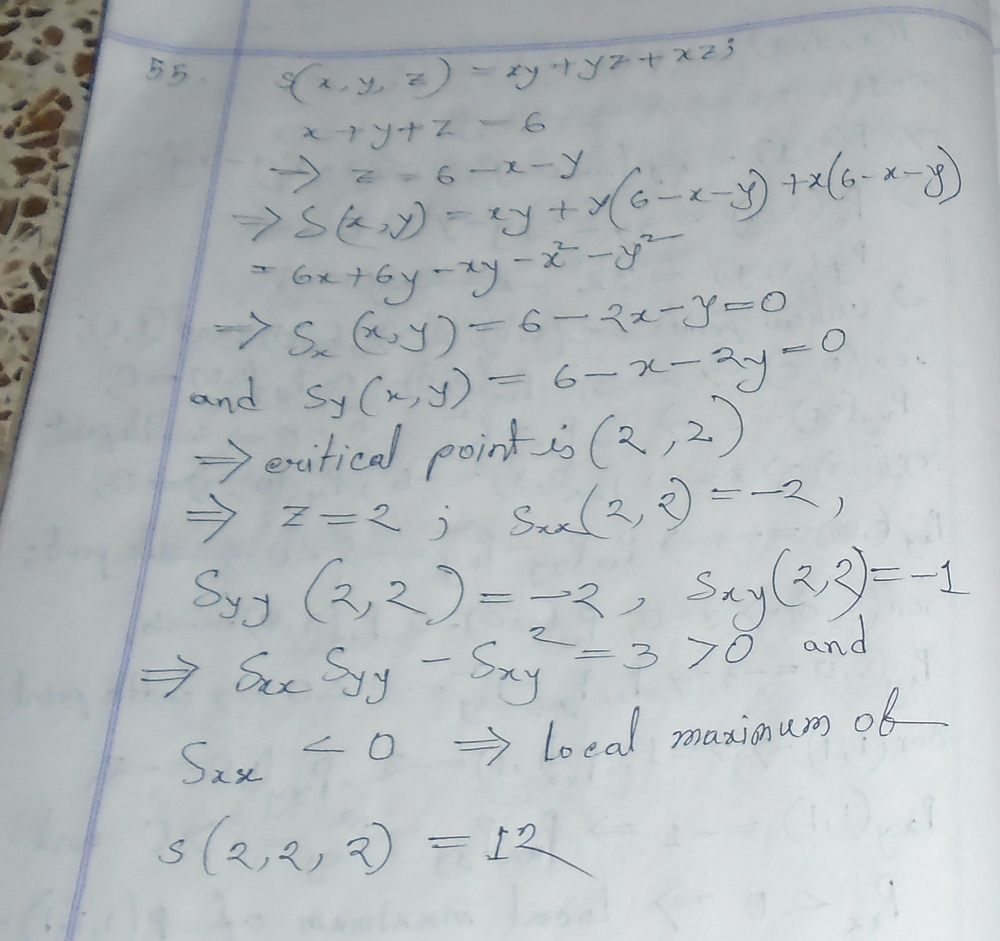 55. s(x, y, z) = xy + yz + xz ;
x + y + z = 6
⇒ z = 6 - x - y
⇒ S(x, y) = xy + y(6 - x - y) + x(6 - x - y)
= 6x + 6y - xy - x² - y²
⇒ Sₓ(x, y) = 6 - 2x - y = 0
and Sy(x, y) = 6 - x - 2y = 0
⇒ critical point is (2, 2)
⇒ z = 2 ; Sxx(2, 2) = -2,
Syy(2, 2) = -2, Sxy(2, 2) = -1
⇒ Sxx Syy - Sxy² = 3 > 0 and
Sxx < 0 ⇒ local maximum of
s(2, 2, 2) = 12